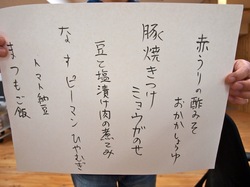 赤うりの酢みそ
おかかしょうゆ
豚焼きつけ
ミョウガのせ
豆と塩漬け肉の煮こみ
なす ピーマン ひやむぎ
トマト納豆
まつもご飯